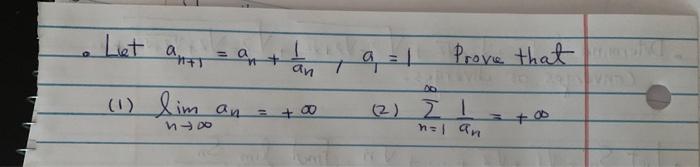 . Let a_{n+1} = a_n + 1/a_n , a_1 = 1 Prove that
(1) lim_{n→∞} a_n = +∞ (2) ∑_{n=1}^{∞} 1/a_n = +∞